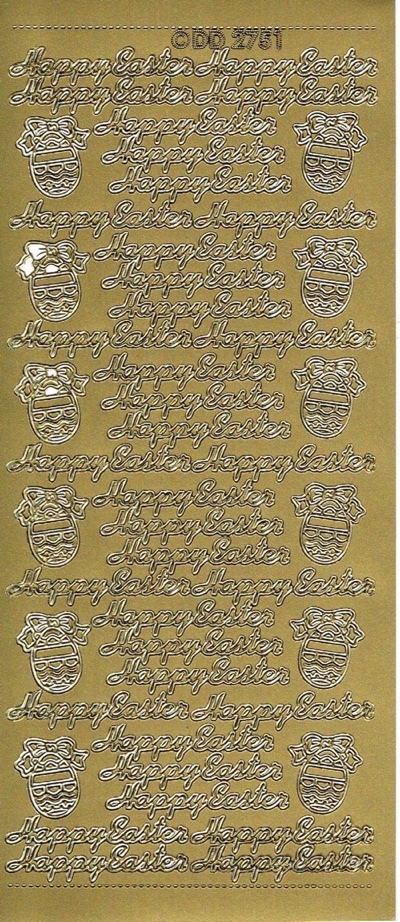 ©DD 2751
Happy Easter Happy Easter
Happy Easter Happy Easter
Happy Easter
Happy Easter
Happy Easter
Happy Easter Happy Easter
Happy Easter
Happy Easter
Happy Easter
Happy Easter Happy Easter
Happy Easter
Happy Easter
Happy Easter
Happy Easter Happy Easter
Happy Easter
Happy Easter
Happy Easter
Happy Easter Happy Easter
Happy Easter
Happy Easter
Happy Easter
Happy Easter Happy Easter
Happy Easter
Happy Easter
Happy Easter
Happy Easter Happy Easter
Happy Easter Happy Easter